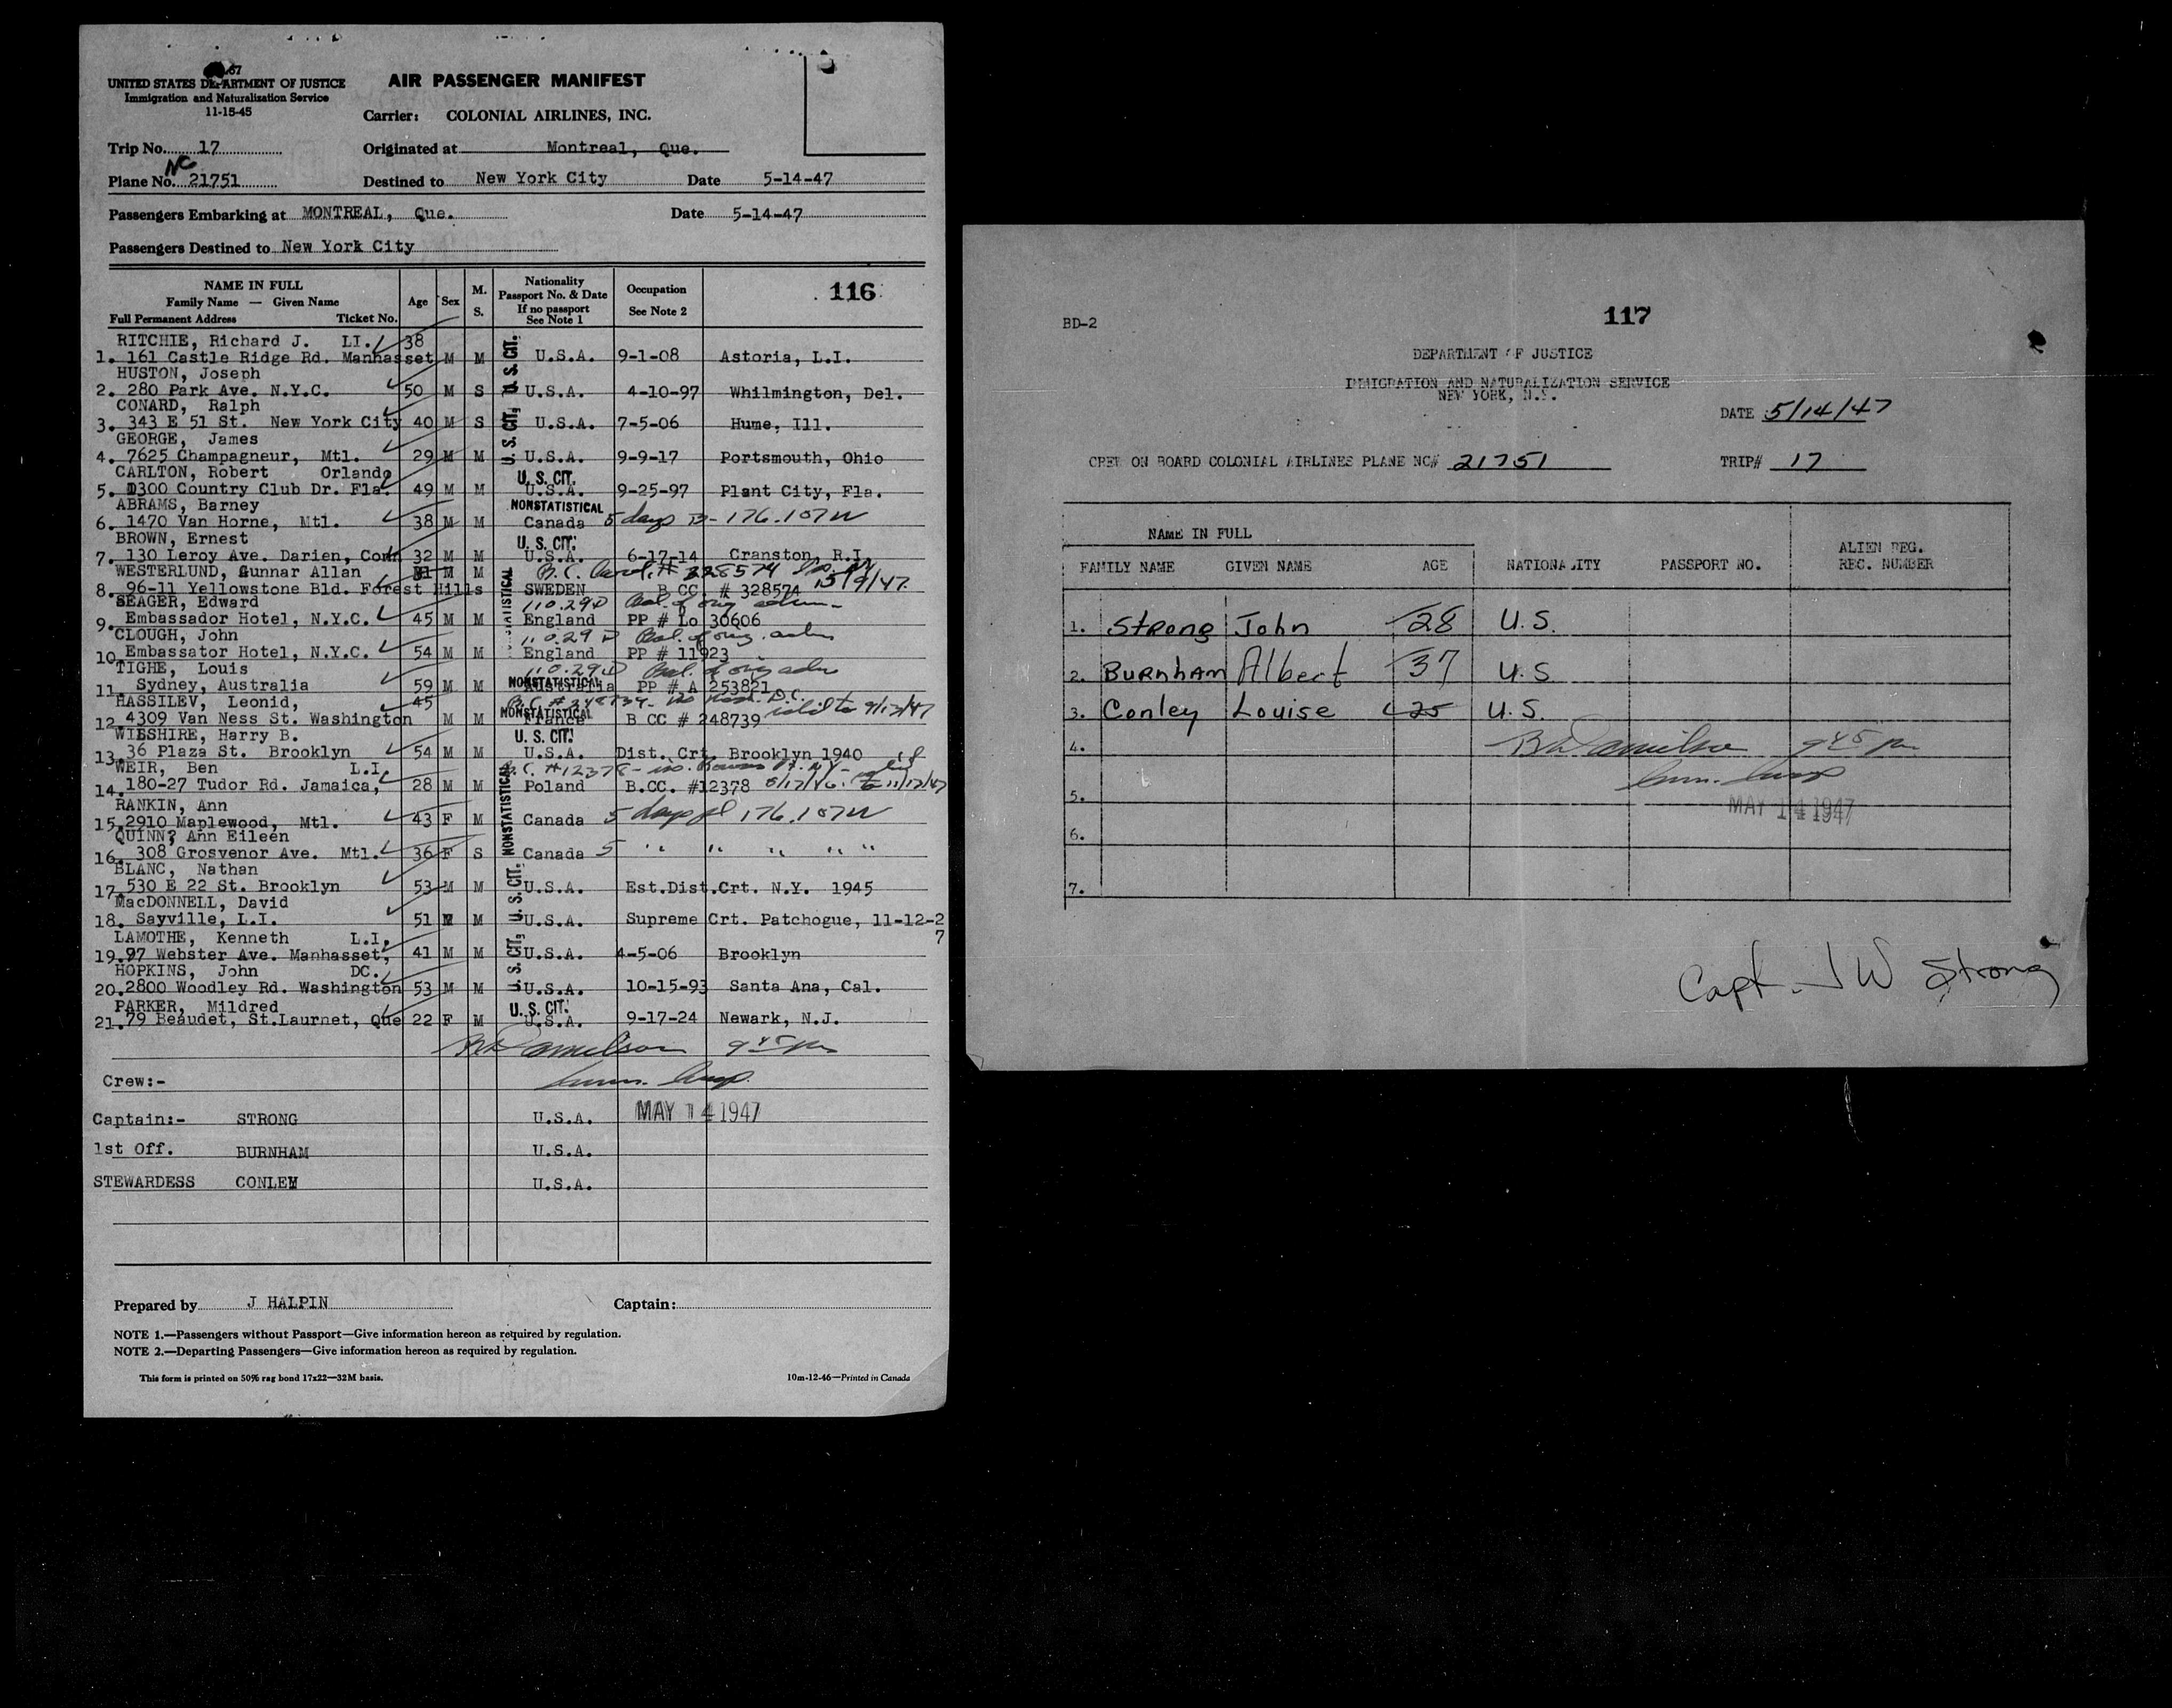 67
UNITED STATES DEPARTMENT OF JUSTICE
Immigration and Naturalization Service
11-15-45
AIR PASSENGER MANIFEST
Carrier: COLONIAL AIRLINES, INC.
Trip No. 17
Originated at Montreal, Que.
NC
Plane No. 21751
Destined to New York City Date 5-14-47
Passengers Embarking at MONTREAL, Que. Date 5-14-47
Passengers Destined to New York City
NAME IN FULL
Family Name — Given Name
Full Permanent Address Ticket No.
Age
Sex
M. S.
Nationality
Passport No. & Date
If no passport
See Note 1
Occupation
See Note 2
116
RITCHIE, Richard J. LI. 38
1. 161 Castle Ridge Rd. Manhasset M M U.S. CIT. U.S.A. 9-1-08 Astoria, L.I.
HUSTON, Joseph
2. 280 Park Ave. N.Y.C. 50 M S U.S.A. 4-10-97 Whilmington, Del.
CONARD, Ralph
3. 343 E 51 St. New York City 40 M S U.S. CIT. U.S.A. 7-5-06 Hume, Ill.
GEORGE, James
4. 7625 Champagneur, Mtl. 29 M M U.S.A. 9-9-17 Portsmouth, Ohio
CARLTON, Robert Orlando U. S. CIT.
5. 1300 Country Club Dr. Fla. 49 M M U.S.A. 9-25-97 Plant City, Fla.
ABRAMS, Barney NONSTATISTICAL
6. 1470 Van Horne, Mtl. 38 M M Canada 5 days B- 176.107W
BROWN, Ernest U. S. CIT.
7. 130 Leroy Ave. Darien, Conn 32 M M U.S.A. 6-17-14 Cranston, R.I.
WESTERLUND, Gunnar Allan 31 M M # 328574 5/9/47
8. 96-11 Yellowstone Bld. Forest Hills SWEDEN B CC. # 328574
SEAGER, Edward 110.29D
9. Embassador Hotel, N.Y.C. 45 M M England PP # Lo 30606
CLOUGH, John 110.29D
10. Embassator Hotel, N.Y.C. 54 M M England PP # 11923
TIGHE, Louis 110.29D
11. Sydney, Australia 59 M M NONSTATISTICAL Australia PP # A 253821
HASSILEV, Leonid, 45 # 248739 D.C.
12. 4309 Van Ness St. Washington M M NONSTATISTICAL France B CC # 248739 valid to 9/12/47
WIBSHIRE, Harry B. U. S. CIT.
13. 36 Plaza St. Brooklyn 54 M M U.S.A. Dist. Crt. Brooklyn 1940
WEIR, Ben L.I. #12378
14. 180-27 Tudor Rd. Jamaica, 28 M M Poland B.CC. #12378 to 11/12/47
RANKIN, Ann
15. 2910 Maplewood, Mtl. 43 F M NONSTATISTICAL Canada 5 days 176.107W
QUINN? Ann Eileen
16. 308 Grosvenor Ave. Mtl. 36 F S Canada 5 " " " " "
BLANC, Nathan
17. 530 E 22 St. Brooklyn 53 M M U.S. CIT. U.S.A. Est.Dist.Crt. N.Y. 1945
MacDONNELL, David
18. Sayville, L.I. 51 M M U.S.A. Supreme Crt. Patchogue, 11-12-2
7
LAMOTHE, Kenneth L.I.
19. 97 Webster Ave. Manhasset, 41 M M U.S. CIT. U.S.A. 4-5-06 Brooklyn
HOPKINS, John DC.
20. 2800 Woodley Rd. Washington 53 M M U.S.A. 10-15-93 Santa Ana, Cal.
PARKER, Mildred U. S. CIT.
21. 79 Beaudet, St.Laurnet, Que 22 F M U.S.A. 9-17-24 Newark, N.J.
9 45 pm
Crew:- Imm. Insp.
Captain:- STRONG U.S.A. MAY 14 1947
1st Off. BURNHAM U.S.A.
STEWARDESS CONLEY U.S.A.
Prepared by J HALPIN Captain:
NOTE 1.—Passengers without Passport—Give information hereon as required by regulation.
NOTE 2.—Departing Passengers—Give information hereon as required by regulation.
This form is printed on 50% rag bond 17x22—32M basis. 10m-12-46—Printed in Canada
BD-2
117
DEPARTMENT OF JUSTICE
IMMIGRATION AND NATURALIZATION SERVICE
NEW YORK, N.Y.
DATE 5/14/47
CREW ON BOARD COLONIAL AIRLINES PLANE NC# 21751 TRIP# 17
NAME IN FULL
FAMILY NAME GIVEN NAME AGE NATIONALITY PASSPORT NO. ALIEN REG. REC. NUMBER
1. Strong John 28 U.S.
2. BURNHAM Albert 37 U.S
3. Conley Louise 25 U.S.
4. 9 45 pm
Imm. Insp
5.
MAY 14 1947
6.
7.
Capt. J W Strong